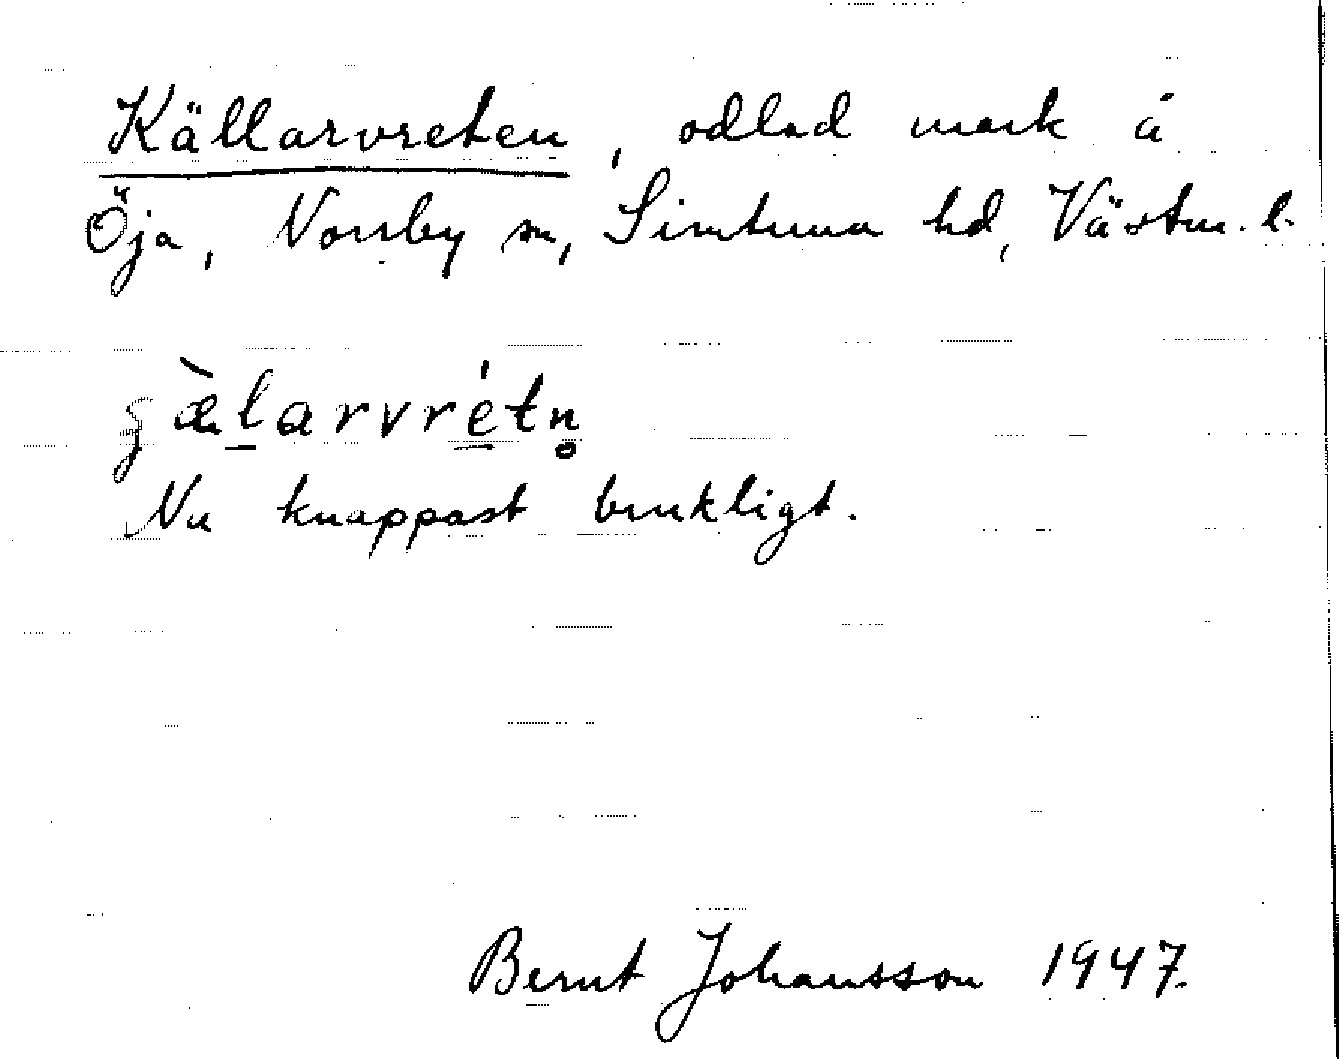 Källarvreten, odlad mark å
Öja, Norrby sn, Simtuna hd, Västm. l.
ȿæ̀larvrétn̥
Nu knappast brukligt.
Bernt Johansson 1947.